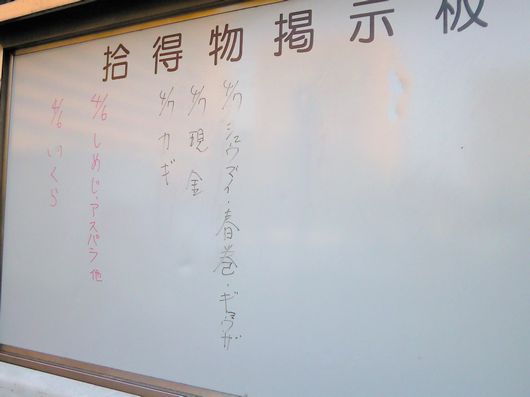 拾得物掲示板
4/7 シュウマイ・春巻・ギョウザ
4/7 現金
4/7 カギ
4/6 しめじ・アスパラ 他
4/6 いくら